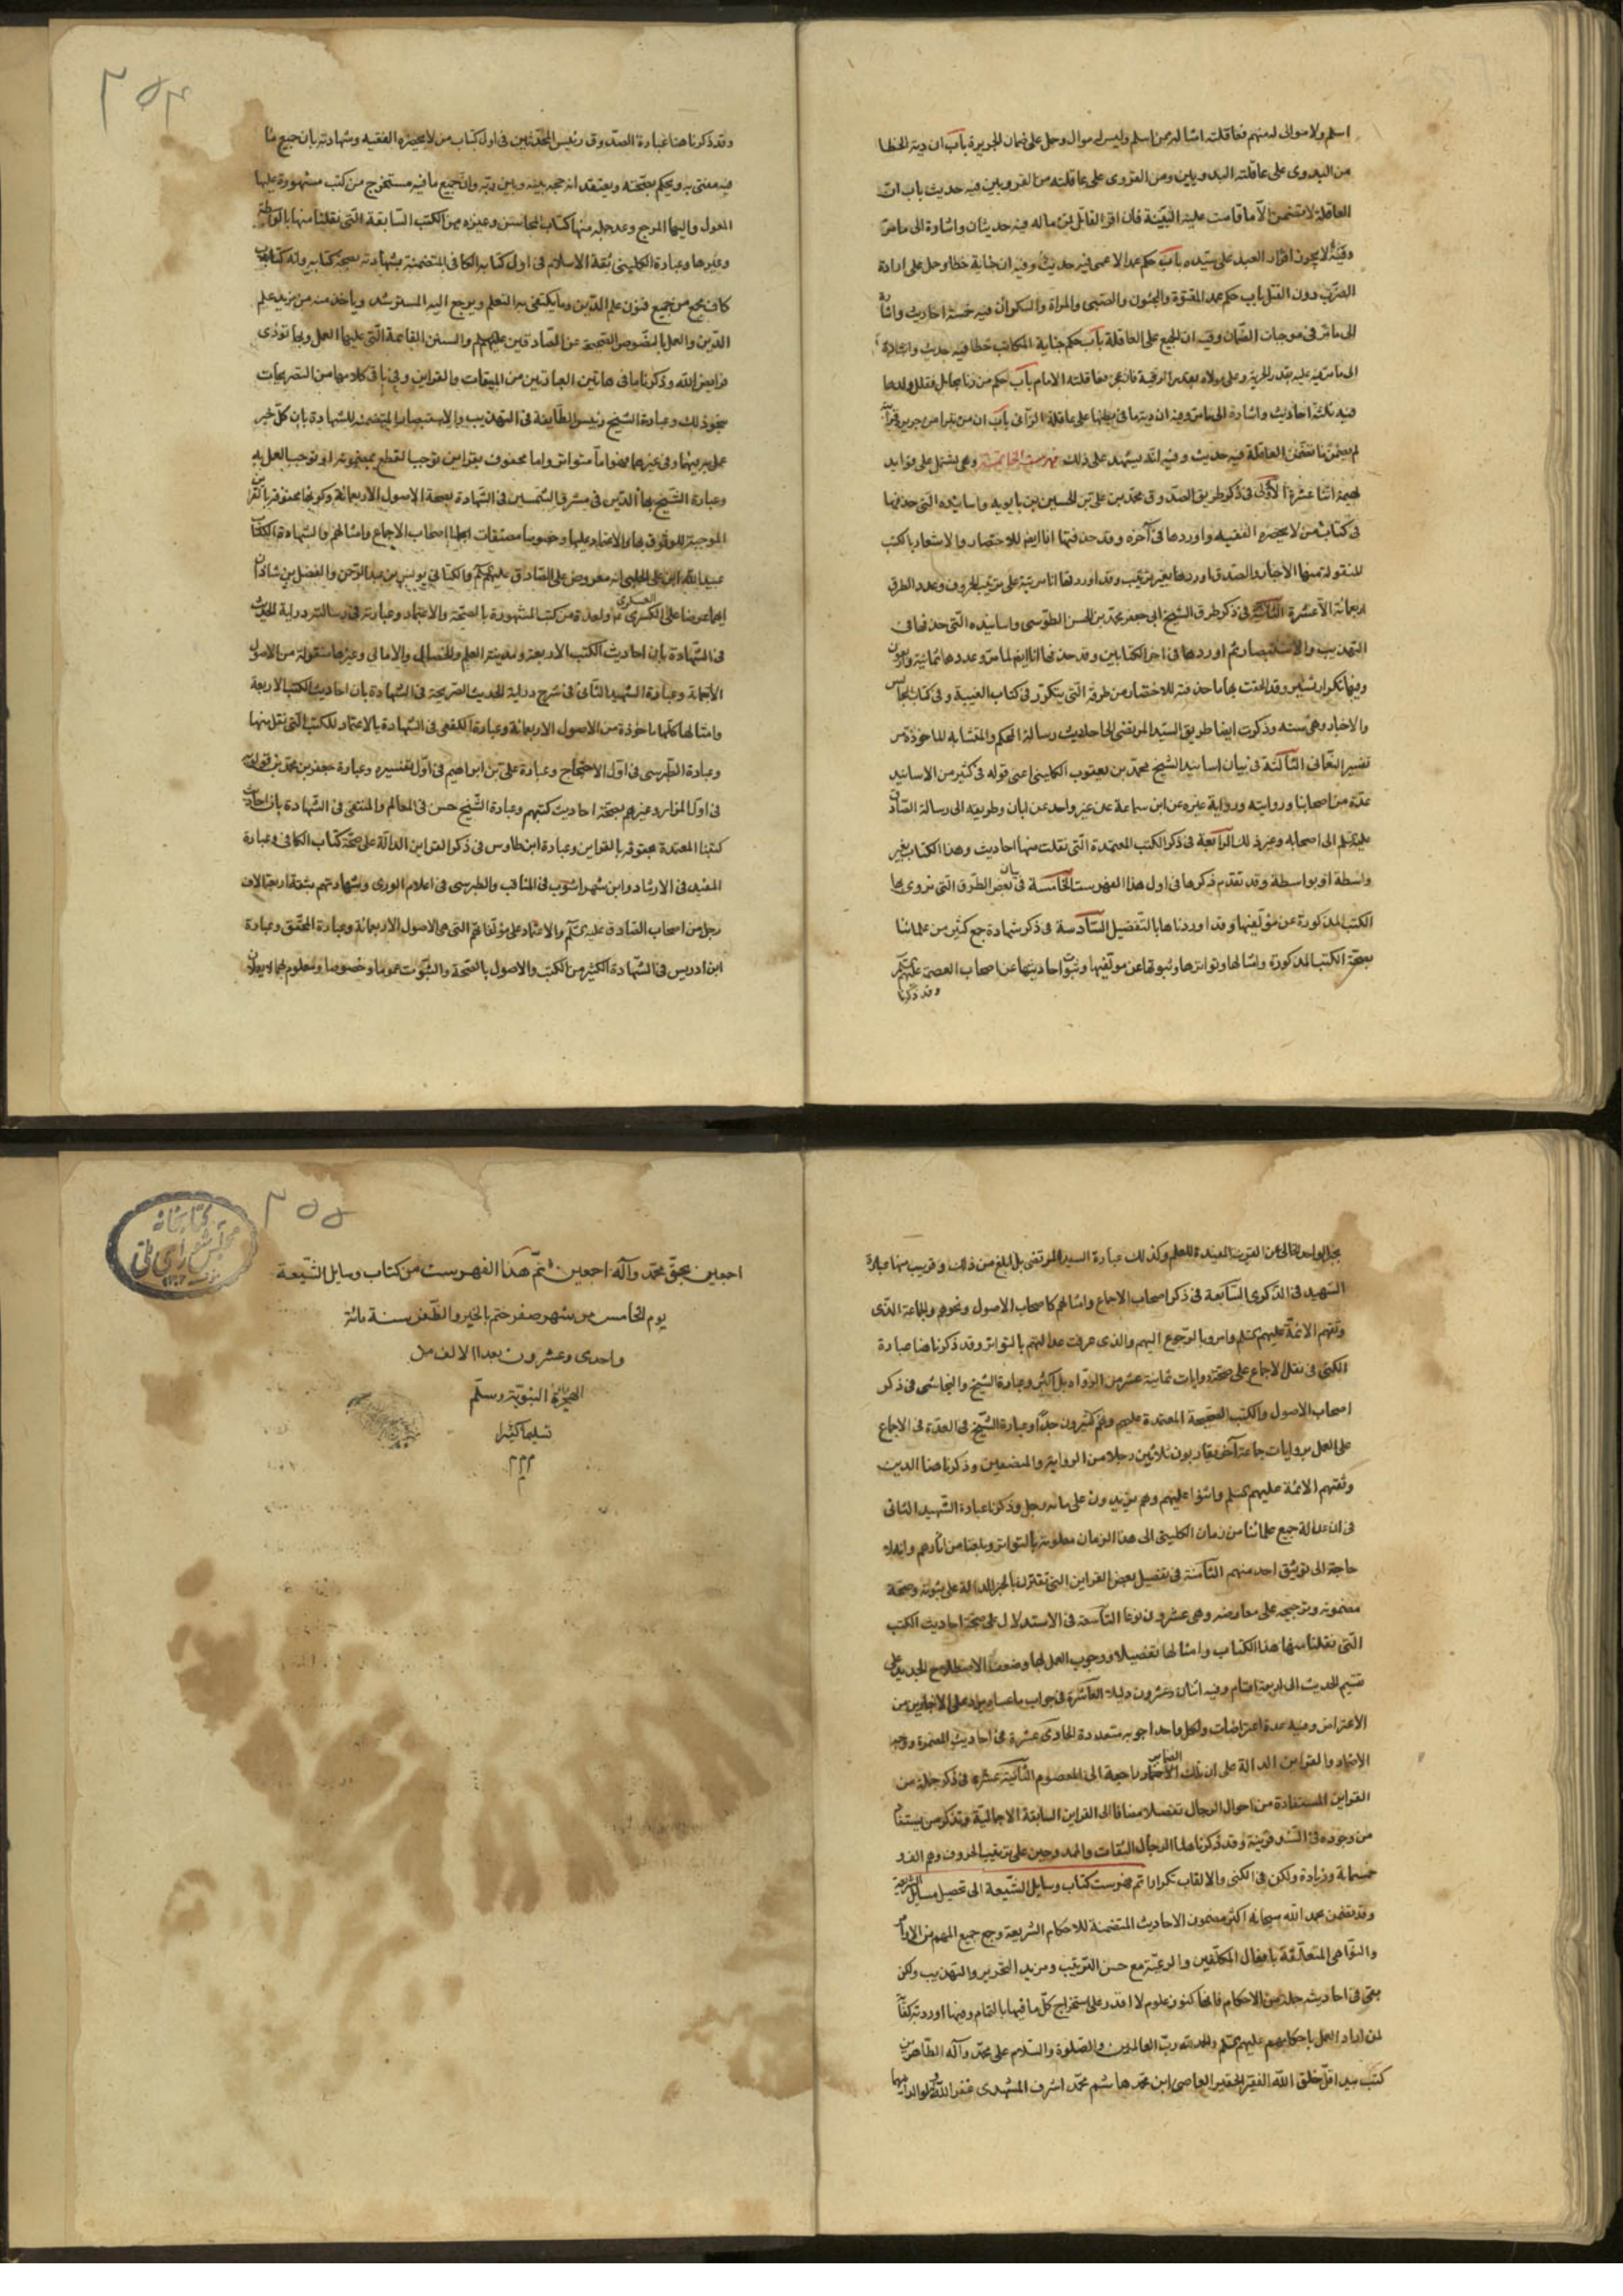 اسلم ولا موالى له منهم فعاقلته امثاله ممن اسلم وليس له موال وحمل على ضمان الجريرة باب ان دية الخطا
من البدوى على عاقلته البدويين ومن القروى على عاقلته من القرويين فيه حديث باب ان
العاقلة لا تضمن الا ما قامت عليه البينة فان اقر القاتل لزم ماله فيه حديثان واشارة الى ما مر
وفيه لا يجوز اقرار العبد على سيده باب حكم عمد الاعمى فيه حديث وفيه ان جناية خطا وحمل على ارادة
الضرب دون القتل باب حكم عمد المعتوه والمجنون والصبى والمراة والسكران فيه خمسة احاديث واشارة
الى ما مر فى موجبات الضمان وفيه ان الجميع على العاقلة باب حكم جناية المكاتب خطا فيه حديث واشارة
فيه ثلثة احاديث واشارة الى ما مر وفيه ان ديتها على عاقلة الزانى باب ان من تبرا من جريرة قرابة
لم يضمن تضمن العاقلة فيه حديث وفيه انه يشهد على ذلك فهرست الخاتمة وهى يشتمل على فوايد
مهمة اثنا عشرة الاولى فى ذكر طريق الصدوق محمد بن على بن الحسين بن بابويه واسانيده التى حذفها
فى كتاب من لا يحضره الفقيه واوردها فى آخره وقد حذفتها انا ايضا للاختصار والاشعار بالكتب
المنقولة منها الاخبار والصدوق اوردها بغير ترتيب وقد اوردتها انا مرتبة على ترتيب الحروف وعدد الطرق
اربعمائة الا عشرة الثانية فى ذكر طرق الشيخ ابى جعفر محمد بن الحسن الطوسى واسانيده التى حذفها فى
التهذيب والاستبصار ثم اوردها فى اخر الكتابين وقد حذفتها انا ايضا لما مر وعددها ثمانية واربعون
وفيها تكرار يسير وقد الحقت بها ما حذفته للاختصار من طرقه التى يتكرر فى كتاب الغيبة وفى كتاب المجالس
والاخبار وهى ستة وذكرت ايضا طريق السيد المرتضى الى احاديث رسالة المحكم والمتشابه الماخوذة من
تفسير النعمانى الثالثة فى بيان اسانيد الشيخ محمد بن يعقوب الكلينى اعنى قوله فى كثير من الاسانيد
عدة من اصحابنا وروايته ورواية غيره عن ابن سماعة عن غير واحد عن ابان وطريقه الى رسالة الصادق
عليه السلم الى اصحابه وغير ذلك الرابعة فى ذكر الكتب المعتمدة التى نقلت منها احاديث هذا الكتاب بغير
واسطة او بواسطة وقد تقدم ذكرها فى اول هذا الفهرست الخامسة فى بيان بعض الطرق التى نروى بها
الكتب المذكورة عن مؤلفيها وقد اوردناها بالتفصيل السادسة فى ذكر شهادة جمع كثير من علمائنا
بصحة الكتب المذكورة وامثالها وتواترها وثبوتها عن مؤلفيها وثبوت احاديثها عن اصحاب العصمة عليهم
وقد ذكرنا
٢٥٤
وقد ذكرنا هنا عبارة الصدوق رئيس المحدثين فى اول كتاب من لا يحضره الفقيه وشهادته بان جميع ما
فيه مفتى به ويحكم بصحته ويعتقد انه حجة بينه وبين ربه وان جميع ما فيه مستخرج من كتب مشهورة عليها
المعول واليها المرجع وعد جملة منها كتاب المحاسن وغيره من الكتب السابقة التى نقلنا منها بالواسطة
وغيرها وعبارة الكلينى ثقة الاسلام فى اول كتابه الكافى المتضمنة لشهادته بصحة كتابه وانه كتاب
كاف يجمع من جميع فنون علم الدين وما يكتفى به المتعلم ويرجع اليه المسترشد وياخذ منه من يريد علم
الدين والعمل بالنصوص الصحيحة عن الصادقين عليهم السلم والسنن القائمة التى عليها العمل وبها تؤدى
فرايض الله وذكرنا ما فى هاتين العبارتين من المبيقات والقراين وفى باقى كلامهما من التصريحات
بنحو ذلك وعبارة الشيخ رئيس الطايفة فى التهذيب والاستبصار المتضمنة للشهادة بان كل خبر
وعبارة الشيخ بهاء الدين فى مشرق الشمسين فى الشهادة بصحة الاصول الاربعمائة وكونها محفوفة بالقراين
الموجبة للوثوق بها والاعتماد عليها وخصوصا مصنفات اصحاب الاجماع وامثالهم والشهادة لكتاب
عبيد الله ابن على الحلبى انه معروض على الصادق عليه السلم والكتابى يونس بن عبد الرحمن والفضل بن شاذان
العسكرى
فى الشهادة بان احاديث الكتب الاربعة ومدينة العلم والخصال والامالى وغيرها منقولة من الاصول
الاربعمائة وعبارة الشهيد الثانى فى شرح دراية الحديث الصريحة فى الشهادة بان احاديث الكتب الاربعة
وامثالها كلها ماخوذة من الاصول الاربعمائة وعبارة الكفعمى فى الشهادة بالاعتماد للكتب التى نقل منها
وعبارة الطبرسى فى اول الاحتجاج وعبارة على بن ابراهيم فى اول تفسيره وعبارة جعفر بن محمد بن قولويه
فى اول المزار وغيرهم بصحة احاديث كتبهم وعبارة الشيخ حسن فى المعالم والمنتقى فى الشهادة بان احاديث
كتبنا المعتمدة محفوفة بالقراين وعبارة ابن طاوس فى ذكر القراين الدالة على صحة كتاب الكافى وعبارة
المفيد فى الارشاد وابن شهر اشوب فى المناقب والطبرسى فى اعلام الورى وشهادتهم بثقة اربعة الاف
رجل من اصحاب الصادق عليه السلم والاعتماد على مؤلفاتهم التى هى الاصول الاربعمائة وعبارة المحقق وعبارة
ابن ادريس فى الشهادة لكثير من الكتب والاصول بالصحة والثبوت عموما وخصوصا ومعلوم انهما لا يعملان
بخبر الواحد الخالى عن القرينة المفيدة للعلم وكذلك عبارة السيد المرتضى بل ابلغ من ذلك وقريب منها عبارة
الشهيد فى الذكرى السابعة فى ذكر اصحاب الاجماع وامثالهم كاصحاب الاصول ونحوهم والجماعة الذى
وثقهم الائمة عليهم السلم وامروا بالرجوع اليهم والذى عرفت عدالتهم بالتواتر وقد ذكرنا هنا عبارة
الكشى فى نقل الاجماع على صحة روايات ثمانية عشر من الرواة بل اكثر وعبارة الشيخ والنجاشى فى ذكر
اصحاب الاصول والكتب الصحيحة المعتمدة عليهم وهم كثيرون جدا وعبارة الشيخ فى العدة فى الاجماع
على العمل بروايات جماعة آخر يقاربون ثلاثين رجلا من الرواية والمصنفين وذكرنا هنا الذين
وثقهم الائمة عليهم السلم واثنوا عليهم وهم يزيدون على مائة رجل وذكرنا عبارة الشهيد الثانى
فى ان عدالة جميع علمائنا من زمان الكلينى الى هذا الزمان معلومة بالتواتر وبلغنا من اثارهم وانه لا
حاجة الى توثيق احد منهم الثامنة فى تفصيل بعض القراين التى تقترن بالخبر الدالة على ثبوته وصحة
مضمونه وترجيحه على معارضه وهى عشرون نوعا التاسعة فى الاستدلال على صحة احاديث الكتب
التى نقلنا منها هذا الكتاب وامثالها تفصيلا ووجوب العمل بها وضعف الاصطلاح الجديد على
تقسيم الحديث الى اربعة اقسام وفيه اثنان وعشرون دليلا العاشرة فى جواب ما عساه يرد على الاخباريين من
الاعتراض وفيه عدة اعتراضات ولكل واحد اجوبة متعددة الحادى عشرة فى احاديث المضمرة ووجه
الضماير
الاضمار والقراين الدالة على ان تلك راجعة الى المعصوم الثانية عشرة فى ذكر جملة من
القراين المستفادة من احوال الرجال تفصيلا مضافا الى القراين السابقة الاجمالية ونذكر من يستفاد
من وجوده فى السند قرينة وقد ذكرنا هنا الرجال الثقات والممدوحين على ترتيب الحروف وهم الف و
خمسمائة وزيادة ولكن فى الكنى والالقاب تكرارا تم فهرست كتاب وسايل الشيعة الى تحصيل مسايل الشريعة
وقد تضمن بحمد الله سبحانه اكثر مضمون الاحاديث المتضمنة للاحكام الشريعة وجمع جميع المهم من الاوامر
والنواهى المتعلقة بافعال المكلفين والرعية مع حسن الترتيب ومزيد التحرير والتهذيب ولكن
بقى فى احاديثه جملة من الاحكام فانها كنوز علوم لا اقدر على استخراج كل ما فيها بالتمام وفيما اوردته كفاية
لمن اراد العمل باحكامهم عليهم السلم والحمد لله رب العالمين والصلوة والسلام على محمد وآله الطاهرين
كتب بيد اقل خلق الله الفقير الحقير العاصى ابن محمد هاشم محمد اشرف المشهدى غفر الله له ولوالديهما
كتابخانه
مجلس شوراى ملى
٢٥٥
اجمعين بحق محمد وآله اجمعين تم هذا الفهرست من كتاب وسايل الشيعة
يوم الخامس من شهر صفر ختم بالخير والظفر سنة مائة
واحدى وعشرون بعد الالف من
الهجرة النبوية وسلم
تسليما كثيرا